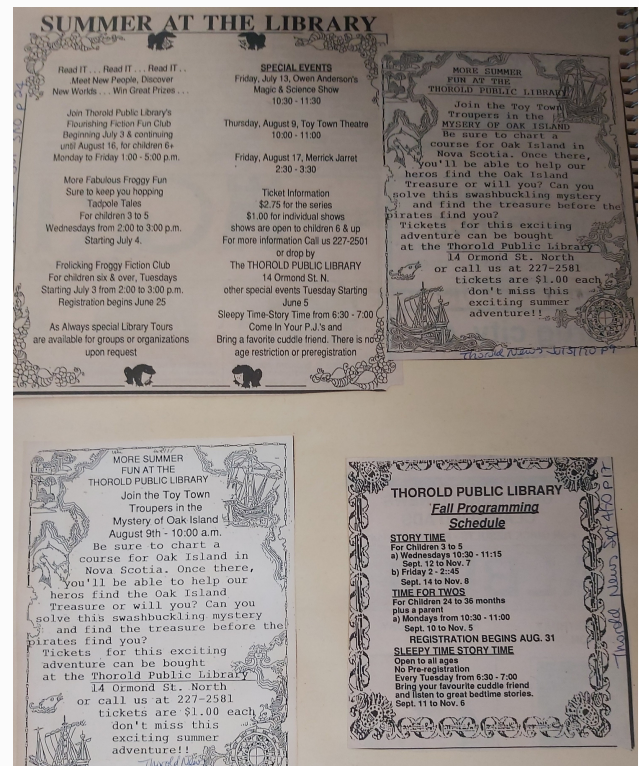 SUMMER AT THE LIBRARY
Read IT . . . Read IT . . . Read IT . .
Meet New People, Discover
New Worlds . . . Win Great Prizes . . .
Join Thorold Public Library's
Flourishing Fiction Fun Club
Beginning July 3 & continuing
until August 16, for children 6+
Monday to Friday 1:00 - 5:00 p.m.
More Fabulous Froggy Fun
Sure to keep you hopping
Tadpole Tales
For children 3 to 5
Wednesdays from 2:00 to 3:00 p.m.
Starting July 4.
Frolicking Froggy Fiction Club
For children six & over, Tuesdays
Starting July 3 from 2:00 to 3:00 p.m.
Registration begins June 25
As Always special Library Tours
are available for groups or organizations
upon request
SPECIAL EVENTS
Friday, July 13, Owen Anderson's
Magic & Science Show
10:30 - 11:30
Thursday, August 9, Toy Town Theatre
10:00 - 11:00
Friday, August 17, Merrick Jarret
2:30 - 3:30
Ticket Information
$2.75 for the series
$1.00 for individual shows
shows are open to children 6 & up
For more information Call us 227-2501
or drop by
The THOROLD PUBLIC LIBRARY
14 Ormond St. N.
other special events Tuesday Starting
June 5
Sleepy Time-Story Time from 6:30 - 7:00
Come In Your P.J.'s and
Bring a favorite cuddle friend. There is no
age restriction or preregistration
MORE SUMMER
FUN AT THE
THOROLD PUBLIC LIBRARY
Join the Toy Town
Troupers in the
MYSERY OF OAK ISLAND
Be sure to chart a
course for Oak Island in
Nova Scotia. Once there,
you'll be able to help our
heros find the Oak Island
Treasure or will you? Can you
solve this swashbuckling mystery
and find the treasure before the
pirates find you?
Tickets for this exciting
adventure can be bought
at the Thorold Public Library
14 Ormond St. North
or call us at 227-2581
tickets are $1.00 each
don't miss this
exciting summer
adventure!!
Thorold News
MORE SUMMER
FUN AT THE
THOROLD PUBLIC LIBRARY
Join the Toy Town
Troupers in the
Mystery of Oak Island
August 9th - 10:00 a.m.
Be sure to chart a
course for Oak Island in
Nova Scotia. Once there,
you'll be able to help our
heros find the Oak Island
Treasure or will you? Can you
solve this swashbuckling mystery
and find the treasure before the
pirates find you?
Tickets for this exciting
adventure can be bought
at the Thorold Public Library
14 Ormond St. North
or call us at 227-2581
tickets are $1.00 each
don't miss this
exciting summer
adventure!!
Thorold News
THOROLD PUBLIC LIBRARY
Fall Programming
Schedule
STORY TIME
For Children 3 to 5
a) Wednesdays 10:30 - 11:15
Sept. 12 to Nov. 7
b) Friday 2 - 2::45
Sept. 14 to Nov. 8
TIME FOR TWOS
For Children 24 to 36 months
plus a parent
a) Mondays from 10:30 - 11:00
Sept. 10 to Nov. 5
REGISTRATION BEGINS AUG. 31
SLEEPY TIME STORY TIME
Open to all ages
No Pre-registration
Every Tuesday from 6:30 - 7:00
Bring your favourite cuddle friend
and listen to great bedtime stories.
Sept. 11 to Nov. 6
Thorold News